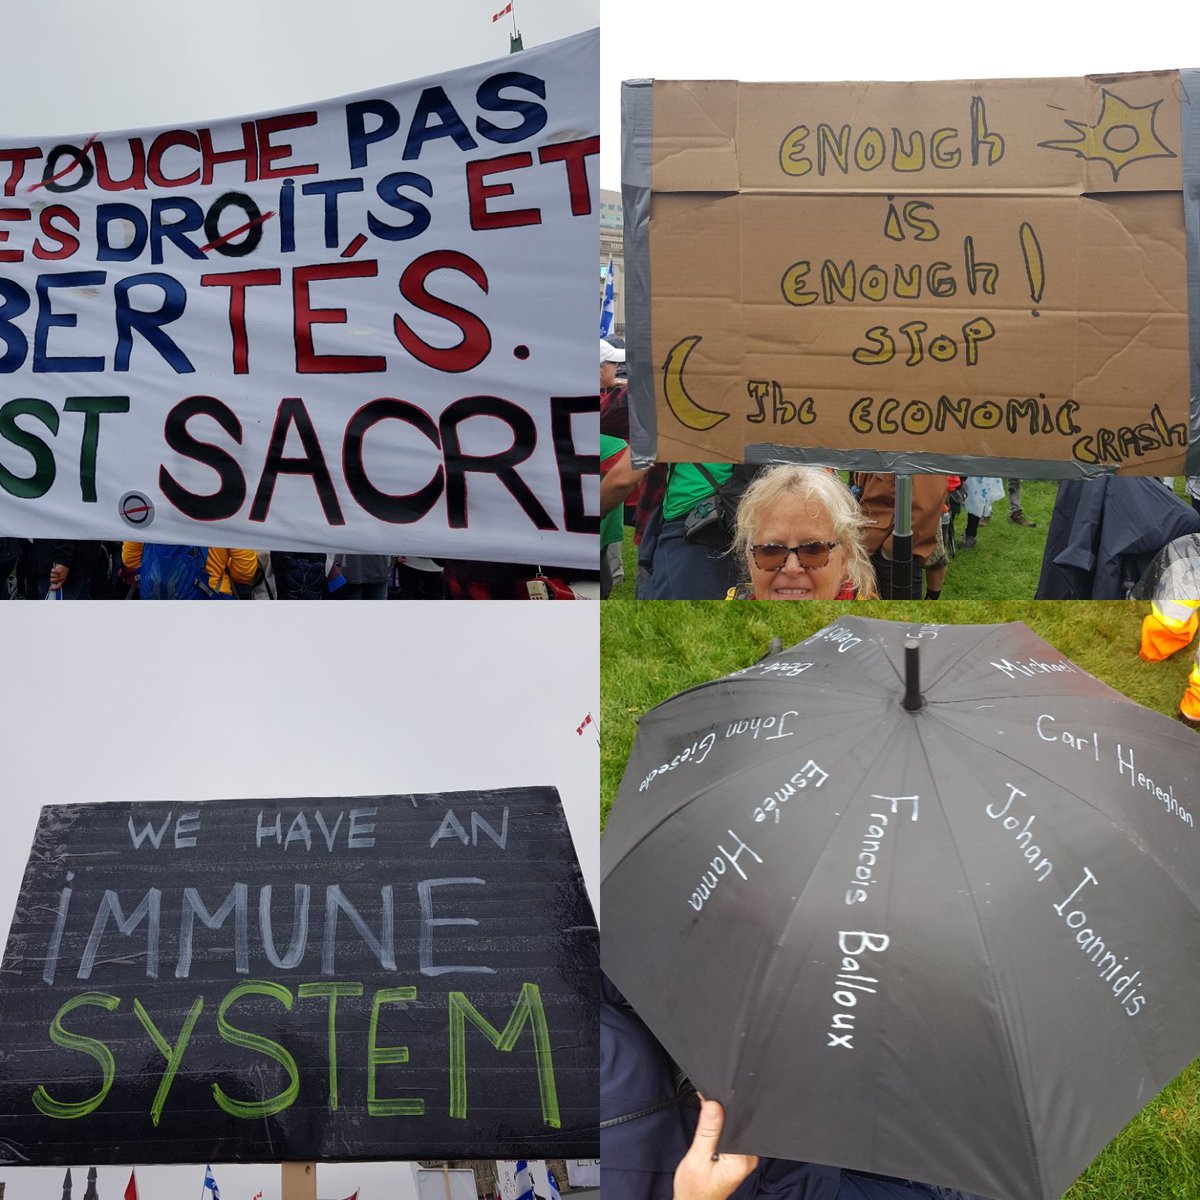 TOUCHE PAS
ES DROiTS ET
BERTÉS.
ST. SACRE
ENOUGh
iS
ENOUGh!
STOP
The ECONOMiC
CRASh
WE HAVE AN
iMMUNE
SYSTEM
Denis
Michael
Johan Giesecke
Carl Heneghan
Esmée Hanna
Francois Balloux
Johan Ioannidis